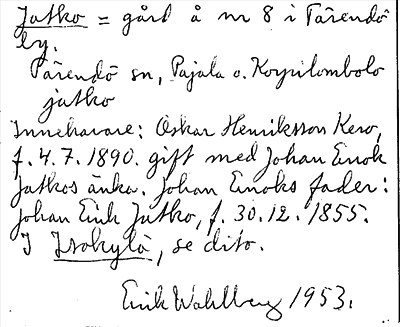 Jatko = gård å nr 8 i Tärendö
by.
Tärendö sn, Pajala o. Korpilombolo
jatko
Innehavare: Oskar Henriksson Kero,
f. 4.7.1890. gift med Johan Enok
Jatkos änka. Johan Enoks fader:
Johan Erik Jatko, f. 30.12.1855.
I Isokylä, se dito.
Erik Wahlberg 1953.